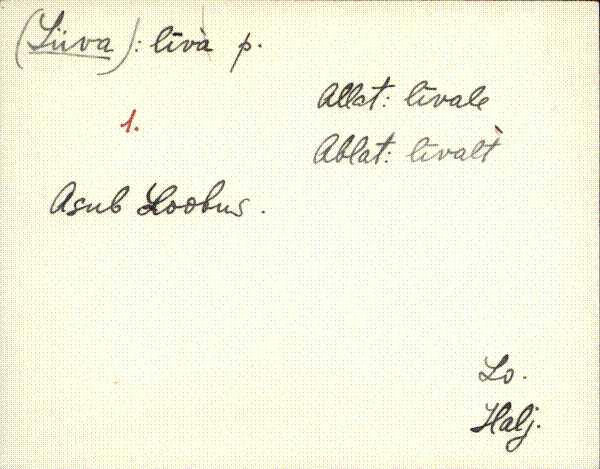 (Liiva): līvà p.
Allat: līvale
1.
Ablat: līvalt̀
Asub Loobus.
Lo.
Halj.